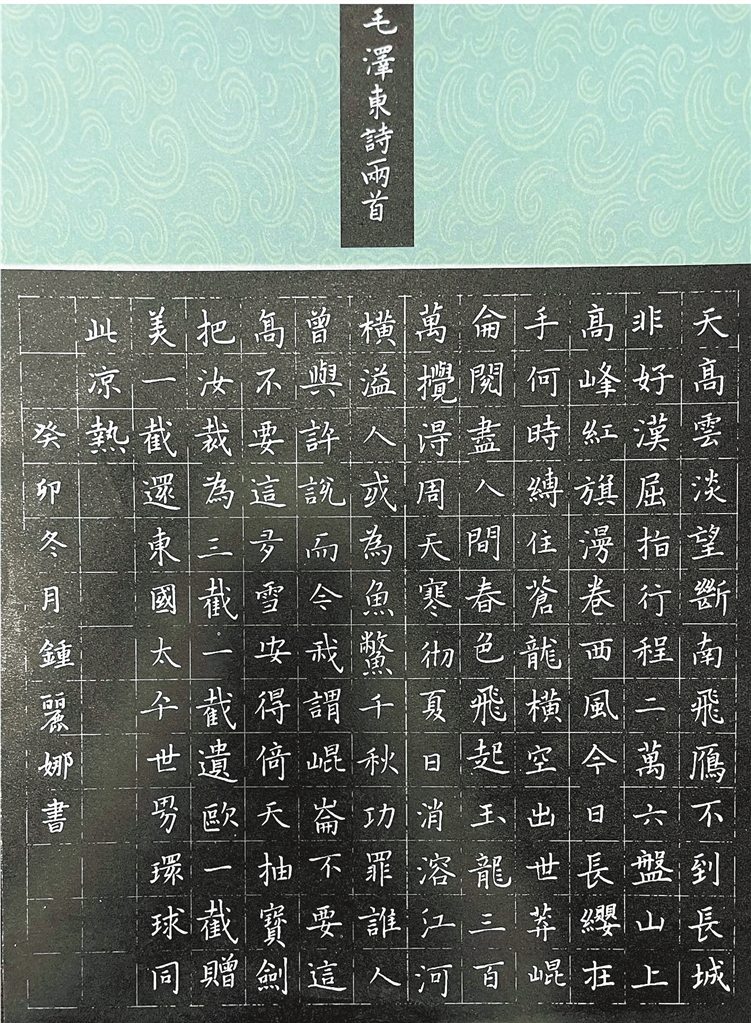 毛澤東詩兩首
天高雲淡望斷南飛鴈不到長城
非好漢屈指行程二萬六盤山上
高峰紅旗漫卷西風今日長纓在
手何時縛住蒼龍橫空出世莽崐
侖閱盡人間春色飛起玉龍三百
萬攪得周天寒彻夏日消溶江河
橫溢人或為魚鱉千秋功罪誰人
曾與許說而今我謂崐崙不要這
高不要這多雪安得倚天抽寶劍
把汝裁為三截一截遺歐一截贈
美一截還東國太平世界環球同
此凉熱
癸卯冬月鍾麗娜書